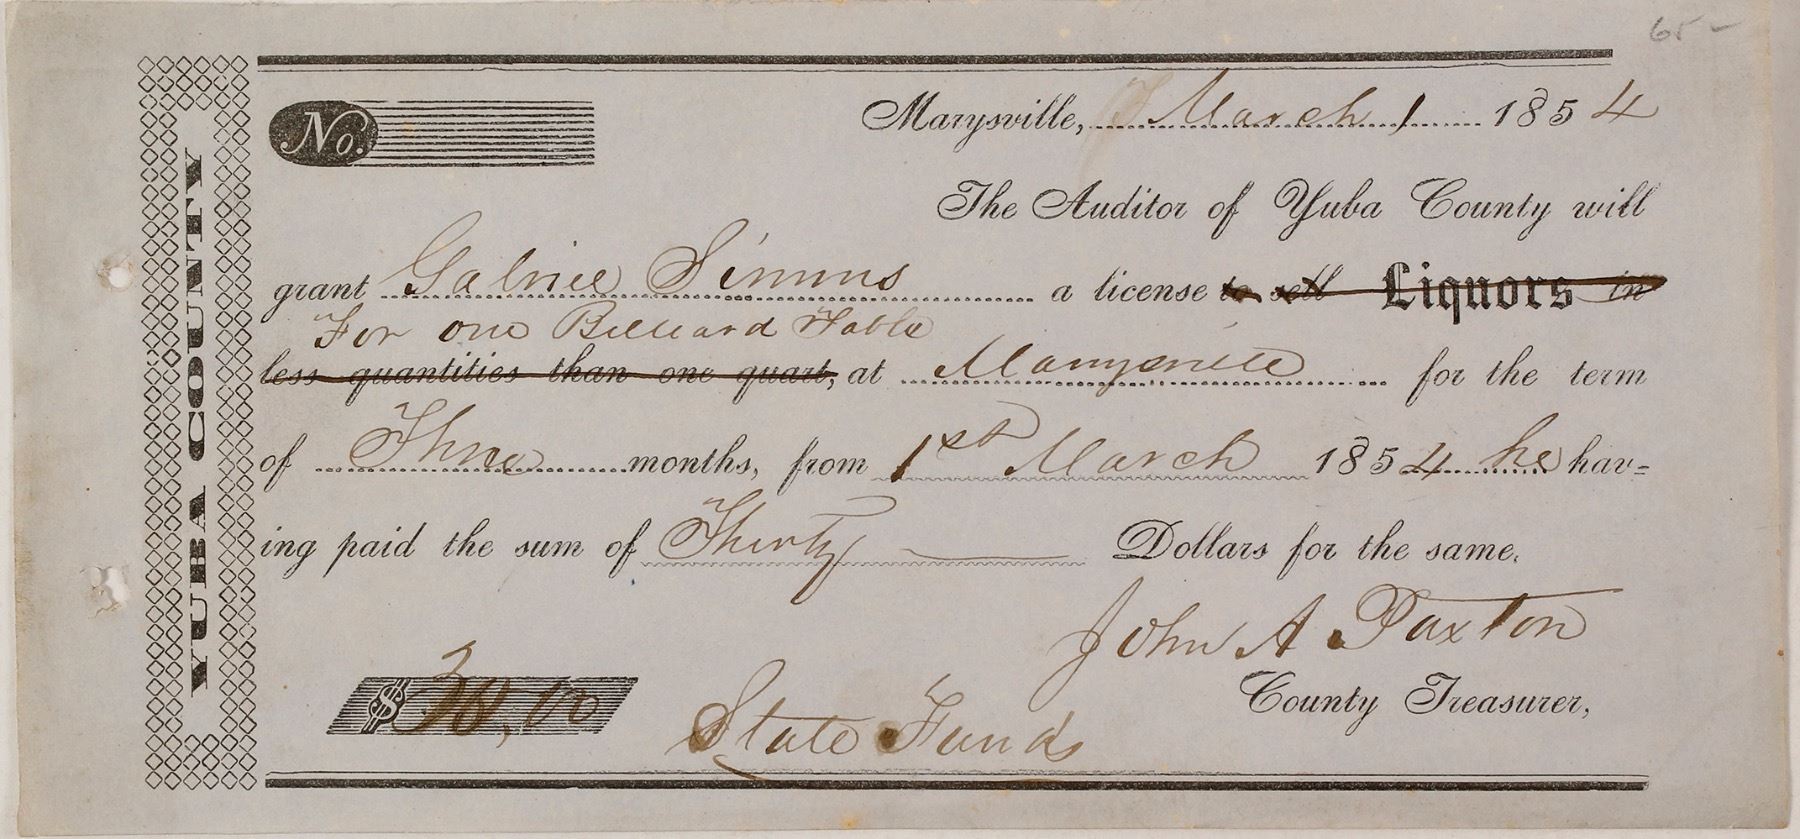 65-
YUBA COUNTY
No.
Marysville, March 1 1854
The Auditor of Yuba County will
grant Gabriel Simms a license to sell Liquors in
For one Billiard Table
less quantities than one quart, at Marysville for the term
of Three months, from 1st March 1854 he hav=
ing paid the sum of Thirty Dollars for the same.
John A Paxton
County Treasurer,
$ 30,00
State Funds